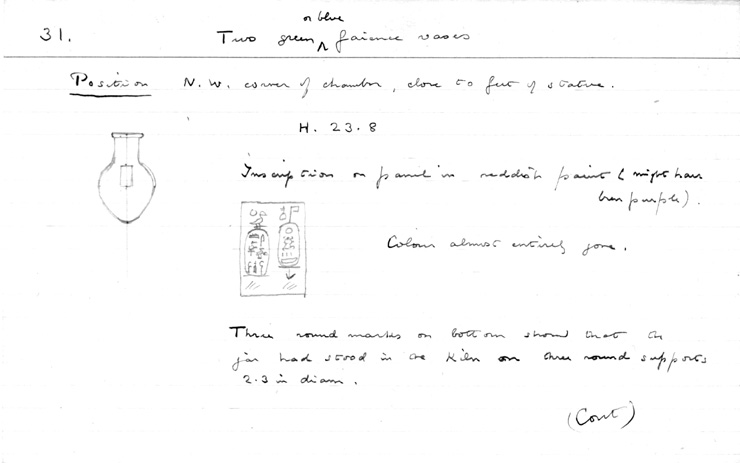 31.
Two green ∧ or blue faience vases
Position N.W. corner of chamber, close to feet of statue.
H. 23.8
Inscription on panel in reddish paint (might have
been purple).
Colour almost entirely gone.
Three round marks on bottom show that the
jar had stood in the kiln on three round supports
2.3 in diam.
(Cont)